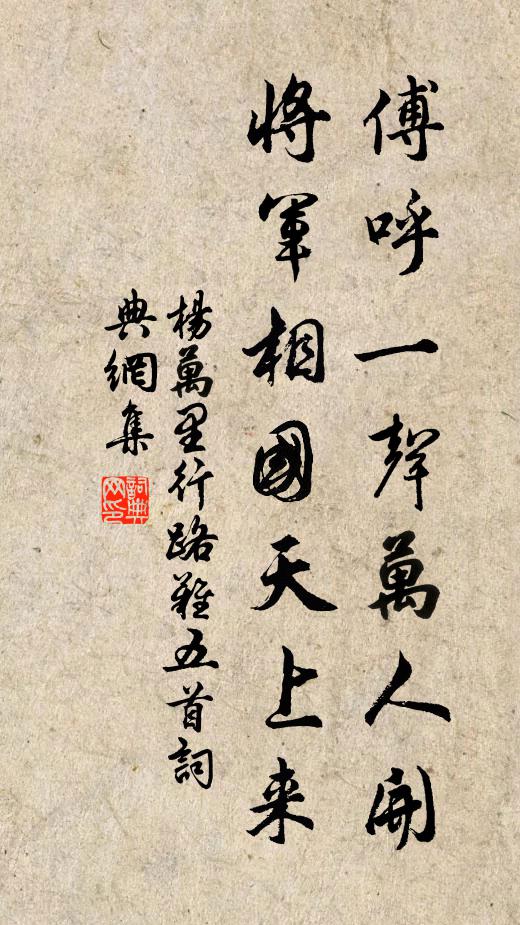 傅呼一聲萬人開
將軍相國天上来
楊萬里行路難五首詞
典網集
詞典
网印